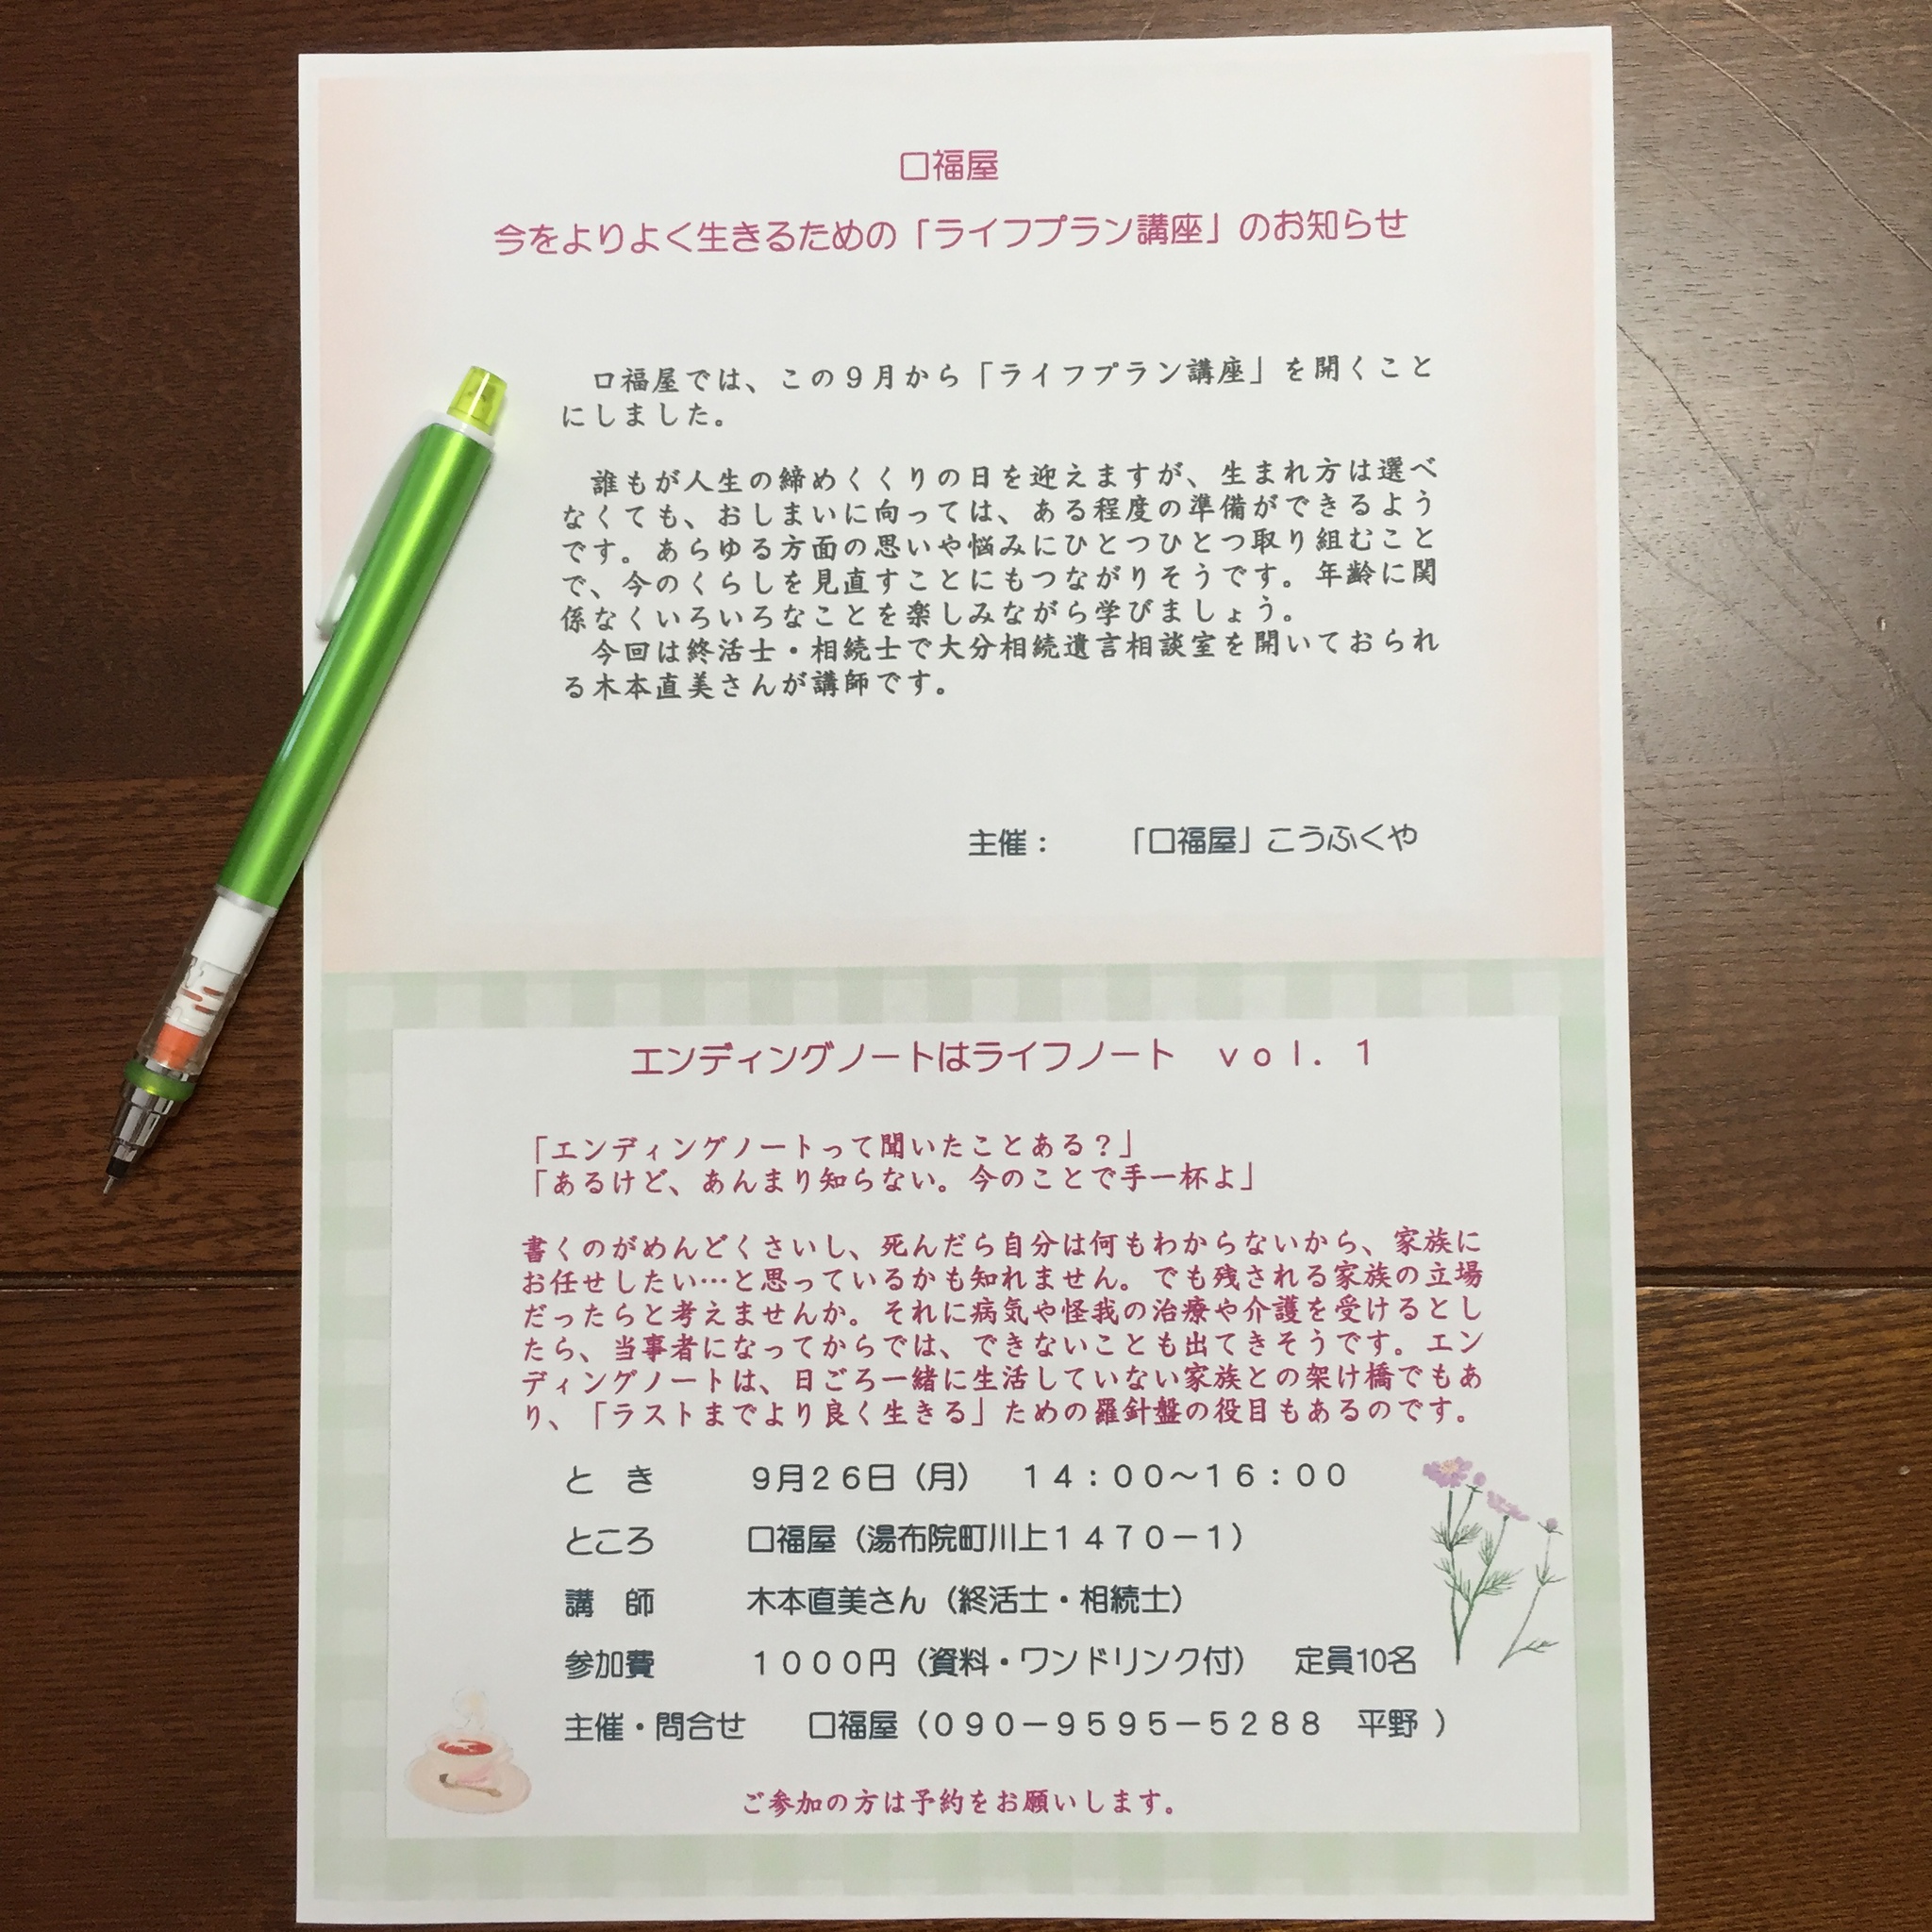 口福屋
今をよりよく生きるための「ライフプラン講座」のお知らせ
口福屋では、この９月から「ライフプラン講座」を開くこと
にしました。
誰もが人生の締めくくりの日を迎えますが、生まれ方は選べ
なくても、おしまいに向っては、ある程度の準備ができるよう
です。あらゆる方面の思いや悩みにひとつひとつ取り組むこと
で、今のくらしを見直すことにもつながりそうです。年齢に関
係なくいろいろなことを楽しみながら学びましょう。
今回は終活士・相続士で大分相続遺言相談室を開いておられ
る木本直美さんが講師です。
主催：　「口福屋」こうふくや
エンディングノートはライフノート　ｖｏｌ．１
「エンディングノートって聞いたことある？」
「あるけど、あんまり知らない。今のことで手一杯よ」
書くのがめんどくさいし、死んだら自分は何もわからないから、家族に
お任せしたい…と思っているかも知れません。でも残される家族の立場
だったらと考えませんか。それに病気や怪我の治療や介護を受けるとし
たら、当事者になってからでは、できないことも出てきそうです。エン
ディングノートは、日ごろ一緒に生活していない家族との架け橋でもあ
り、「ラストまでより良く生きる」ための羅針盤の役目もあるのです。
と　き　　９月２６日（月）　１４：００～１６：００
ところ　　口福屋（湯布院町川上１４７０－１）
講　師　　木本直美さん（終活士・相続士）
参加費　　１０００円（資料・ワンドリンク付）　定員10名
主催・問合せ　　口福屋（０９０－９５９５－５２８８　平野 ）
ご参加の方は予約をお願いします。